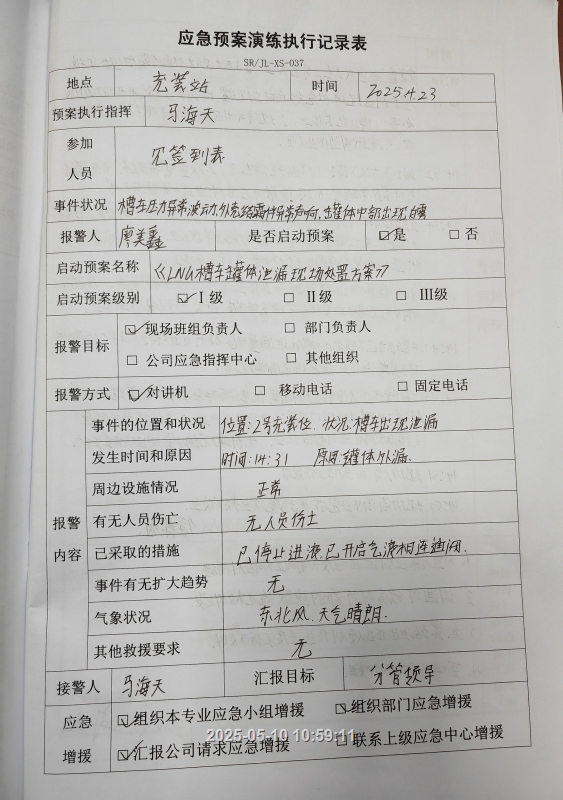 应急预案演练执行记录表
SR/JL-XS-037
地点 充装站 时间 2025.4.23
预案执行指挥 马海天
参加人员 见签到表
事件状况 槽车压力异常波动,外壳结霜伴异常声响,罐体中部出现白雾
报警人 廖美鑫 是否启动预案 ☑是 □否
启动预案名称 《LNG槽车罐体泄漏现场处置方案》
启动预案级别 ☑Ⅰ级 □Ⅱ级 □Ⅲ级
报警目标 ☑现场班组负责人 □部门负责人
□公司应急指挥中心 □其他组织
报警方式 ☑对讲机 □移动电话 □固定电话
报警内容
事件的位置和状况 位置:2号充装位.状况:槽车出现泄漏
发生时间和原因 时间:14:31 原因:罐体外漏.
周边设施情况 正常
有无人员伤亡 无人员伤亡
已采取的措施 已停止进液.已开启气液相连通阀.
事件有无扩大趋势 无
气象状况 东北风.天气晴朗.
其他救援要求 无
接警人 马海天 汇报目标 分管领导
应急增援 ☑组织本专业应急小组增援 ☑组织部门应急增援
☑汇报公司请求应急增援 □联系上级应急中心增援
2025-05-10 10:59:11